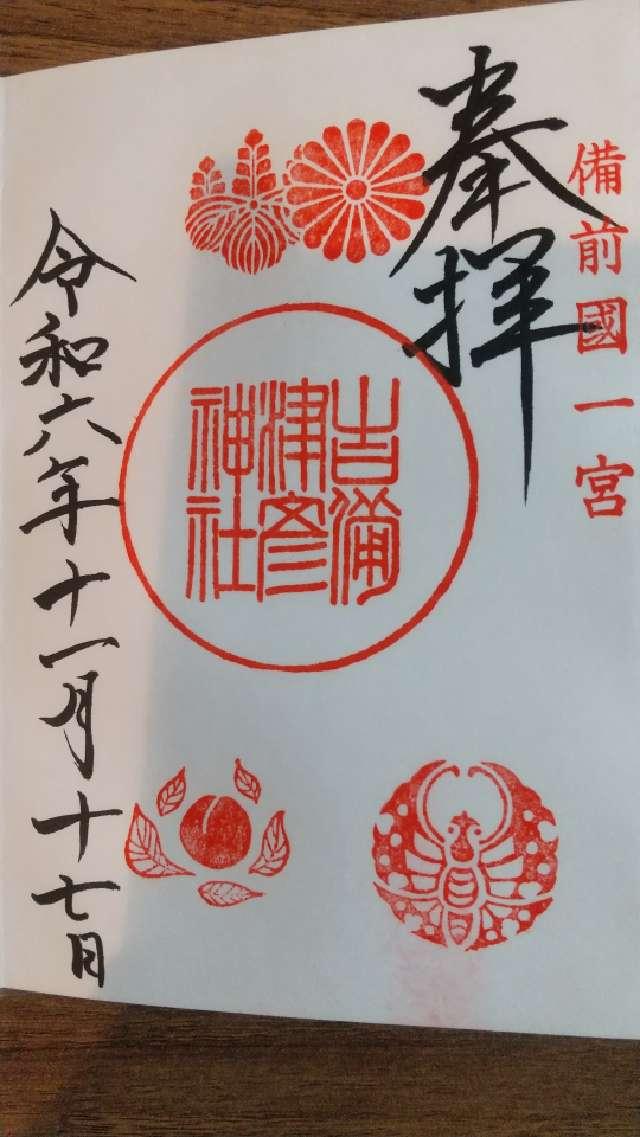 備前國一宮
奉拝
吉備
津彦
神社
令和六年十一月十七日